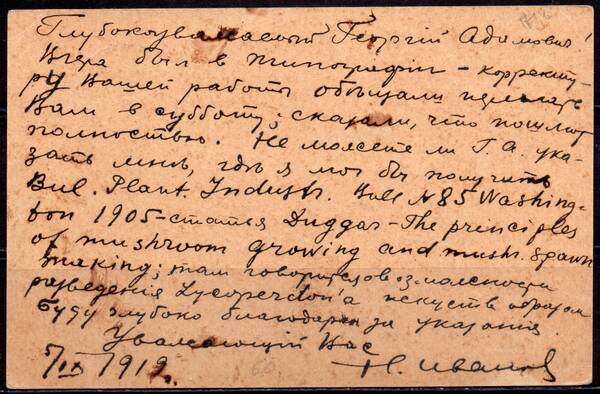 Глубокоуважаемый Георгій Адамович!
Вчера был в типографіи – корректу-
ру Вашей работы обѣщали
Вам в субботу; сказали, что пошлют
полностью. Не можете ли Г. А. ука-
зать мнѣ, гдѣ я мог бы получить
Bul. Plant. Industr. Bull N 85 Washing-
ton 1905 – статья Duggar – The principles
of mushroom growing and mushr. spawn
making; там говорится о возможности
разведенія Lycoperdon'а искуств. образом
Буду глубоко благодарен за указанія.
Уважающій Вас
5/IX 1919. Н. Иванов